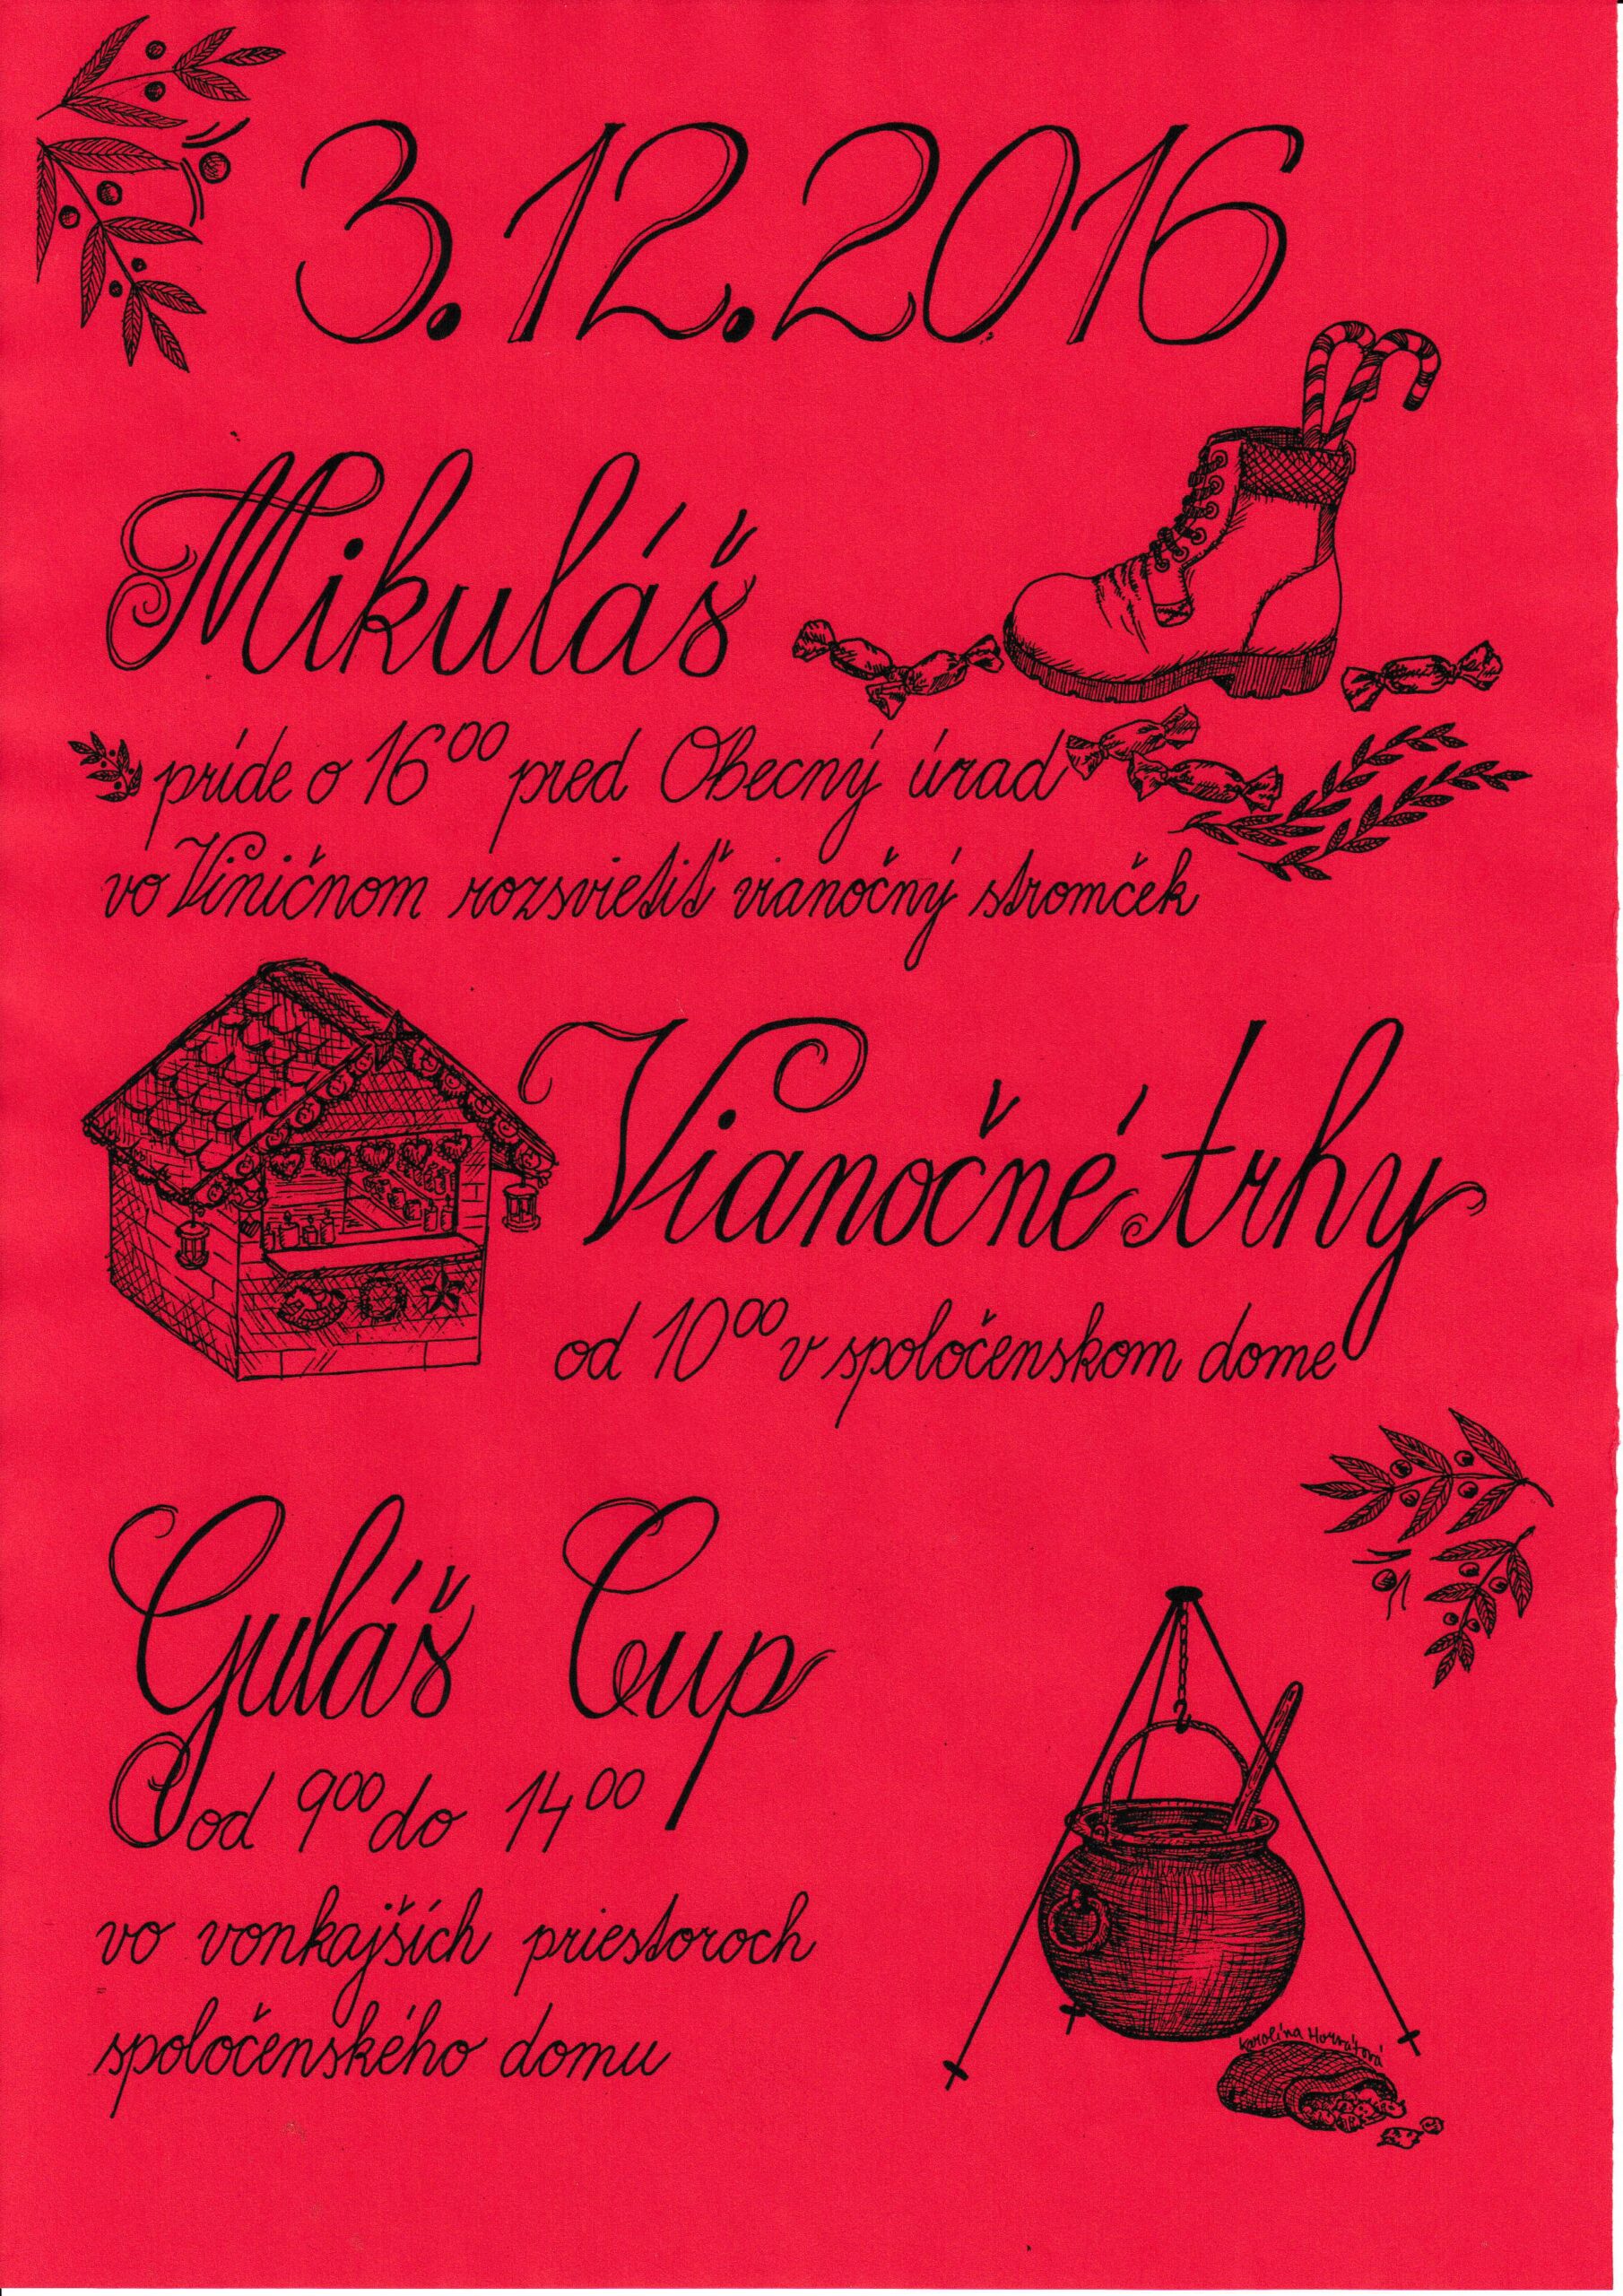 3.12.2016
Mikuláš
príde o 16⁰⁰ pred Obecný úrad
vo Viničnom rozsvietiť vianočný stromček
Vianočné trhy
od 10⁰⁰ v spoločenskom dome
Guláš Cup
od 9⁰⁰ do 14⁰⁰
vo vonkajších priestoroch
spoločenského domu
Karolína Horvátová